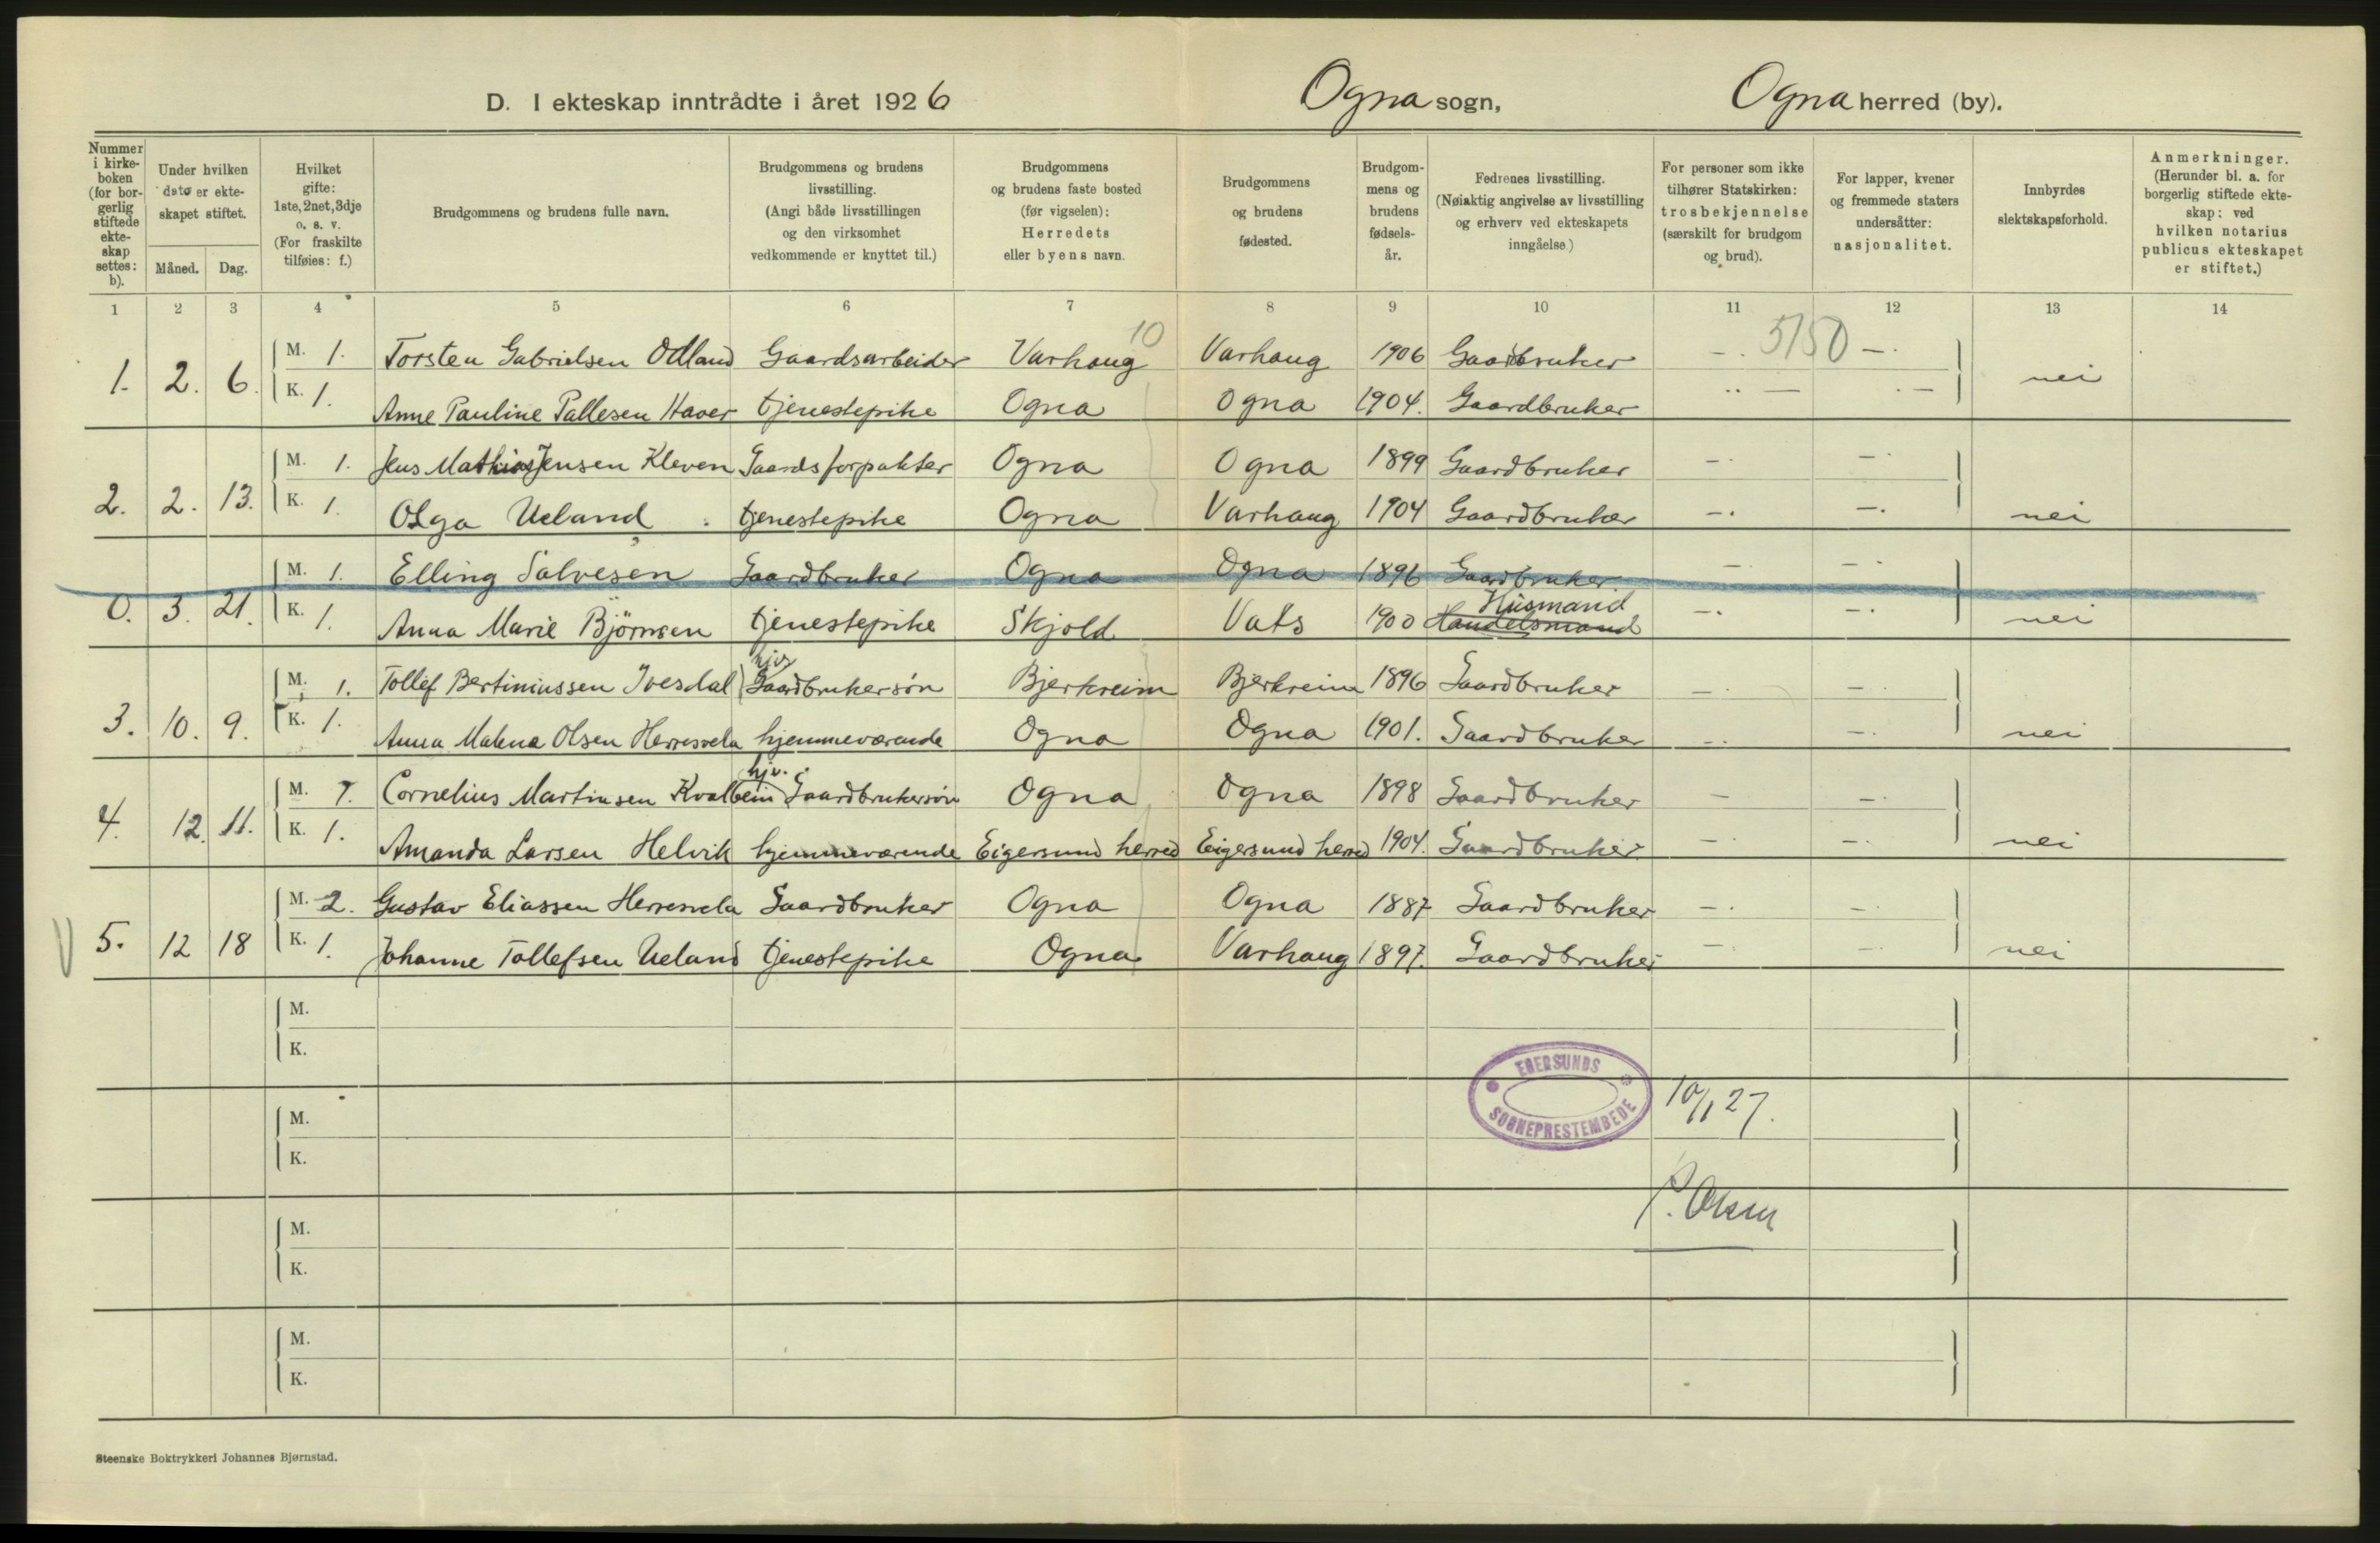 D. I ekteskap inntrådte i året 1926 Ogna sogn, Ogna herred (by).
Nummer i kirke-boken (for bor-gerlig stiftede ekte-skap settes: b).
Under hvilken dato er ekte-skapet stiftet.
Måned. Dag.
Hvilket gifte: 1ste, 2net, 3dje o. s. v. (For fraskilte tilføies: f.)
Brudgommens og brudens fulle navn.
Brudgommens og brudens livsstilling. (Angi både livsstillingen og den virksomhet vedkommende er knyttet til.)
Brudgommens og brudens faste bosted (før vigselen): Herredets eller byens navn.
Brudgommens og brudens fødested.
Brudgom-mens og brudens fødsels-år.
Fedrenes livsstilling. (Nøiaktig angivelse av livsstilling og erhverv ved ekteskapets inngåelse)
For personer som ikke tilhører Statskirken: trosbekjennelse (særskilt for brudgom og brud).
For lapper, kvener og fremmede staters undersåtter: nasjonalitet.
Innbyrdes slektskapsforhold.
Anmerkninger. (Herunder bl. a. for borgerlig stiftede ekte-skap: ved hvilken notarius publicus ekteskapet er stiftet.)
1 2 3 4 5 6 7 8 9 10 11 12 13 14
10 5150
M. 1. Torsten Gabrielsen Odland Gaardsarbeider Varhaug Varhaug 1906 Gaardbruker —. —.
1. 2. 6. K. 1. Anne Pauline Pallesen Haver tjenestepike Ogna Ogna 1904. Gaardbruker — — nei
M. 1. Jens Mathias Jensen Kleven Gaardsforpakter Ogna Ogna 1899 Gaardbruker —. —.
2. 2. 13. K. 1. Olga Ueland tjenestepike Ogna Varhaug 1904 Gaardbruker —. —. nei
M. 1. Elling Salvesen Gaardbruker Ogna Ogna 1896 Gaardbruker — —.
Husmand
0. 3. 21. K. 1. Anna Marie Björnsen tjenestepike Skjold Vats 1900 Handelsmand —. —. nei
hjv.
M. 1. Tollef Bertiniussen Ivesdal Gaardbrukersøn Bjerkreim Bjerkreim 1896 Gaardbruker —. —.
3. 10. 9. K. 1. Anna Malena Olsen Herresvela hjemmeværende Ogna Ogna 1901. Gaardbruker —. —. nei
hjv.
M. 1. Cornelius Martinsen Kvalbein Gaardbrukersøn Ogna Ogna 1898 Gaardbruker — —.
4. 12. 11. K. 1. Amanda Larsen Helvik hjemmeværende Eigersund herred Eigersund herred 1904. Gaardbruker —. —. nei
M. 2. Gustav Eliassen Herresvela Gaardbruker Ogna Ogna 1887 Gaardbruker —. —.
5. 12 18 K. 1. Johanne Tollefsen Ueland tjenestepike Ogna Varhaug 1897. Gaardbruker —. —. nei
M.
K.
EGERSUNDS SOGNEPRESTEMBEDE
10/1 27.
M.
K.
M.
K.
M.
K.
Steenske Boktrykkeri Johannes Bjørnstad.